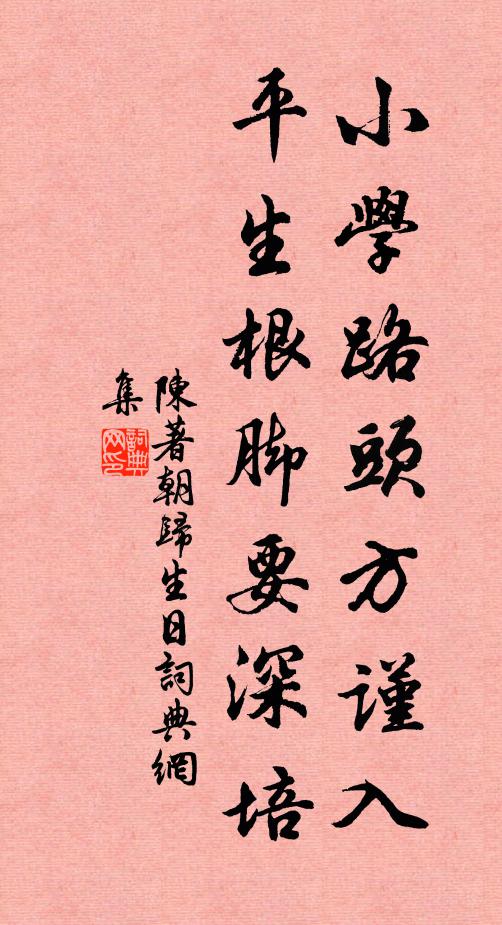 小學路頭方謹入
平生根脚要深培
陳著朝歸生日詞典網
集
詞典
网印